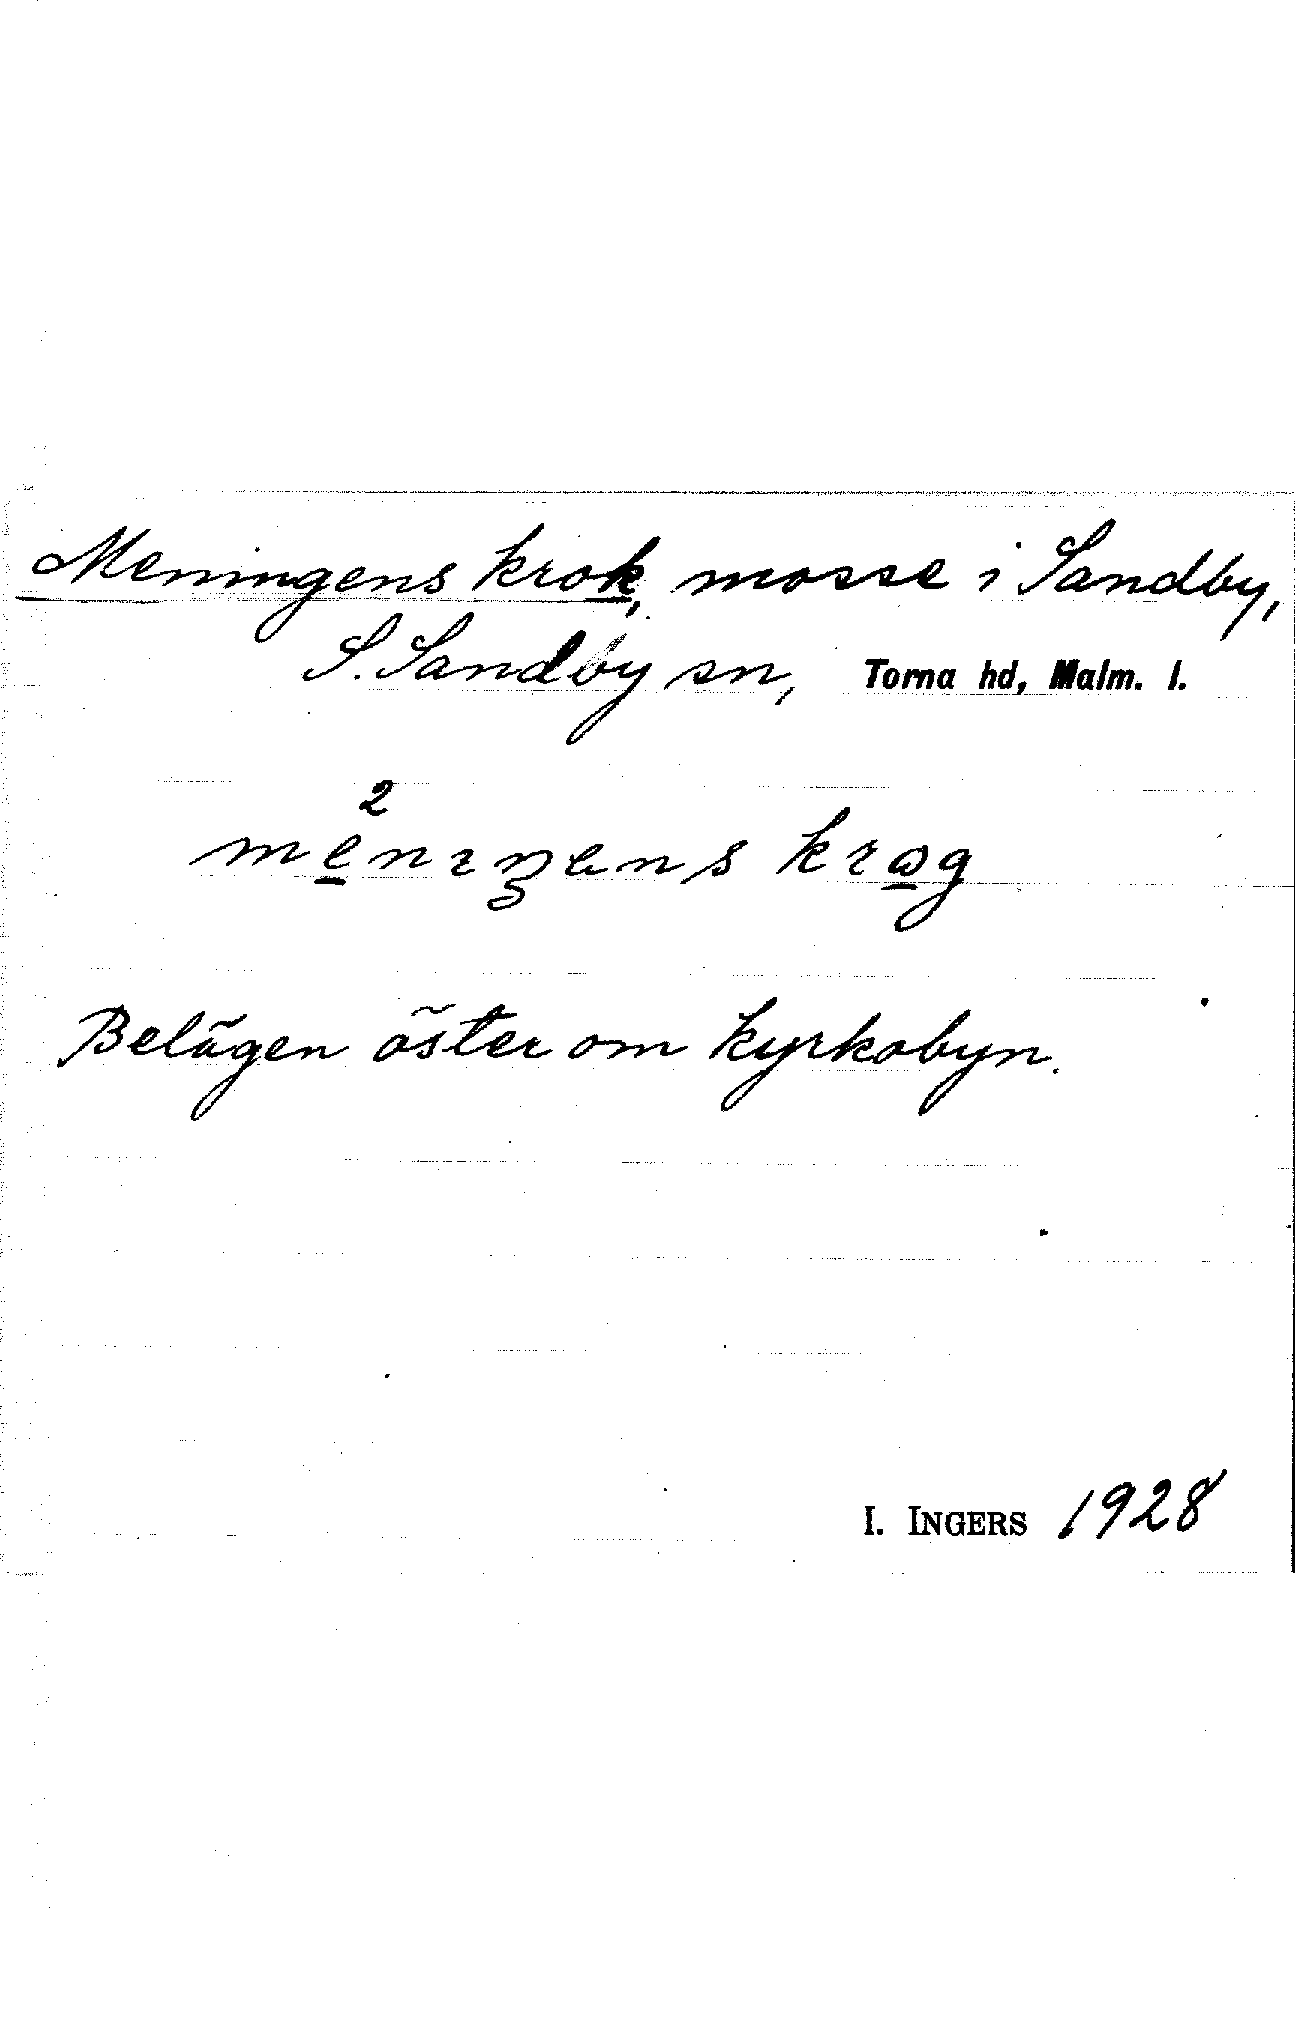 Meningens krok, mosse i Sandby,
S. Sandby sn, Torna hd, Malm. l.
me̲²nıŋens krω̲g
Belägen öster om kyrkobyn.
I. INGERS 1928